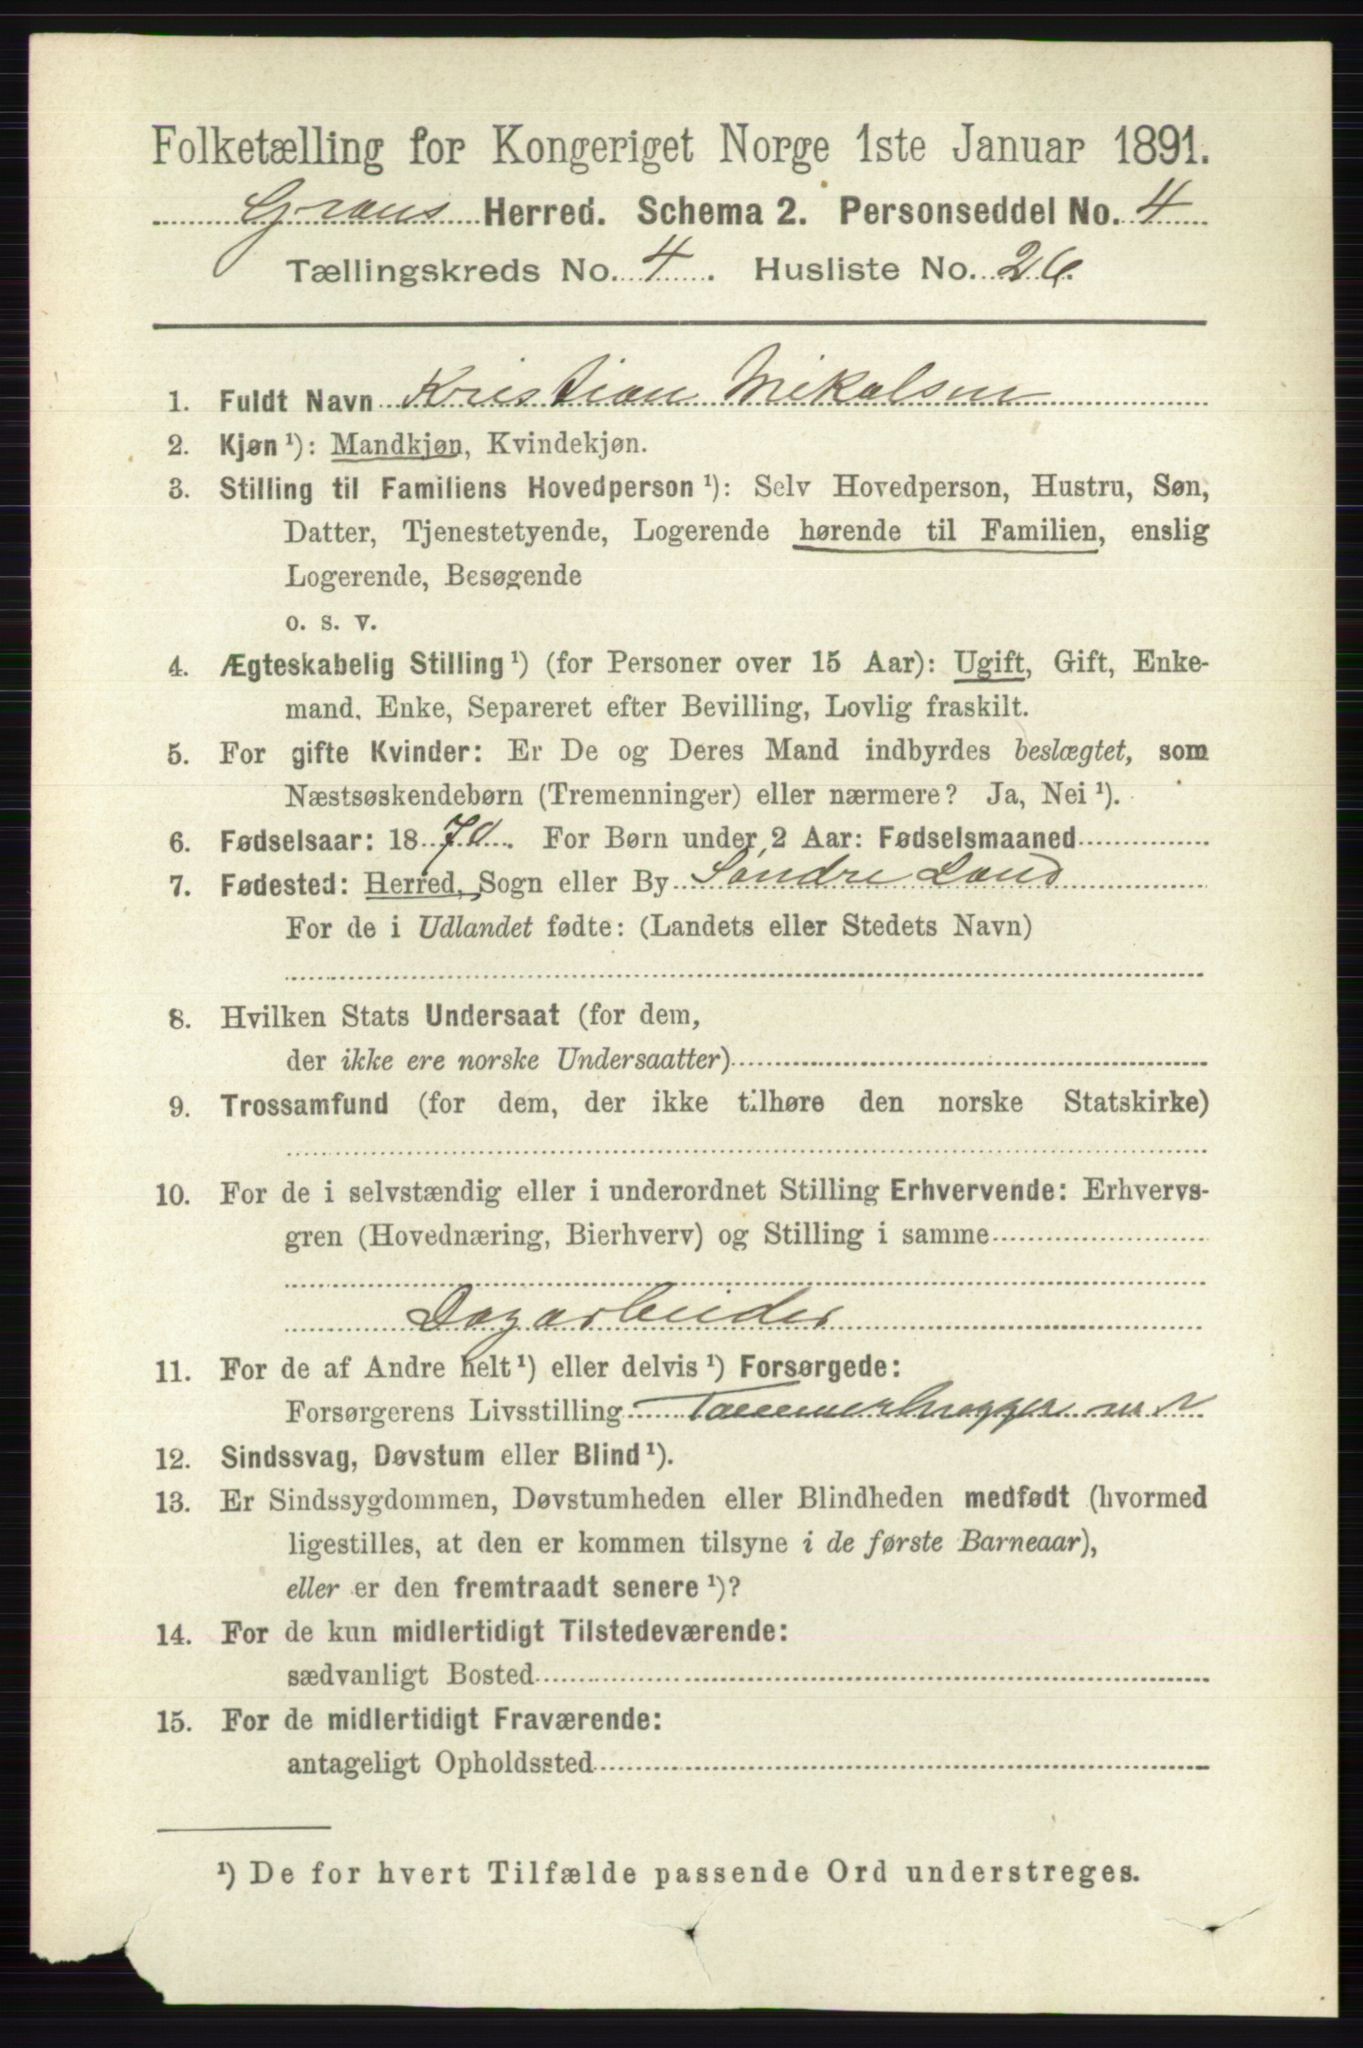 Folketælling for Kongeriget Norge 1ste Januar 1891.
Grans Herred. Schema 2. Personseddel No. 4
Tællingskreds No. 4. Husliste No. 26.
1. Fuldt Navn Kristian Mikalsen
2. Kjøn ¹): Mandkjøn, Kvindekjøn.
3. Stilling til Familiens Hovedperson ¹): Selv Hovedperson, Hustru, Søn,
Datter, Tjenestetyende, Logerende hørende til Familien, enslig
Logerende, Besøgende
o. s. v.
4. Ægteskabelig Stilling ¹) (for Personer over 15 Aar): Ugift, Gift, Enke-
mand, Enke, Separeret efter Bevilling, Lovlig fraskilt.
5. For gifte Kvinder: Er De og Deres Mand indbyrdes beslægtet, som
Næstsøskendebørn (Tremenninger) eller nærmere? Ja, Nei ¹).
6. Fødselsaar: 1870. For Børn under 2 Aar: Fødselsmaaned
7. Fødested: Herred, Sogn eller By Søndre Land
For de i Udlandet fødte: (Landets eller Stedets Navn)
8. Hvilken Stats Undersaat (for dem,
der ikke ere norske Undersaatter)
9. Trossamfund (for dem, der ikke tilhøre den norske Statskirke)
10. For de i selvstændig eller i underordnet Stilling Erhvervende: Erhvervs-
gren (Hovednæring, Bierhverv) og Stilling i samme
Dagarbeider
11. For de af Andre helt ¹) eller delvis ¹) Forsørgede:
Forsørgerens Livsstilling Tømmerhugger m v
12. Sindssvag, Døvstum eller Blind ¹).
13. Er Sindssygdommen, Døvstumheden eller Blindheden medfødt (hvormed
ligestilles, at den er kommen tilsyne i de første Barneaar),
eller er den fremtraadt senere ¹)?
14. For de kun midlertidigt Tilstedeværende:
sædvanligt Bosted
15. For de midlertidigt Fraværende:
antageligt Opholdssted
¹) De for hvert Tilfælde passende Ord understreges.